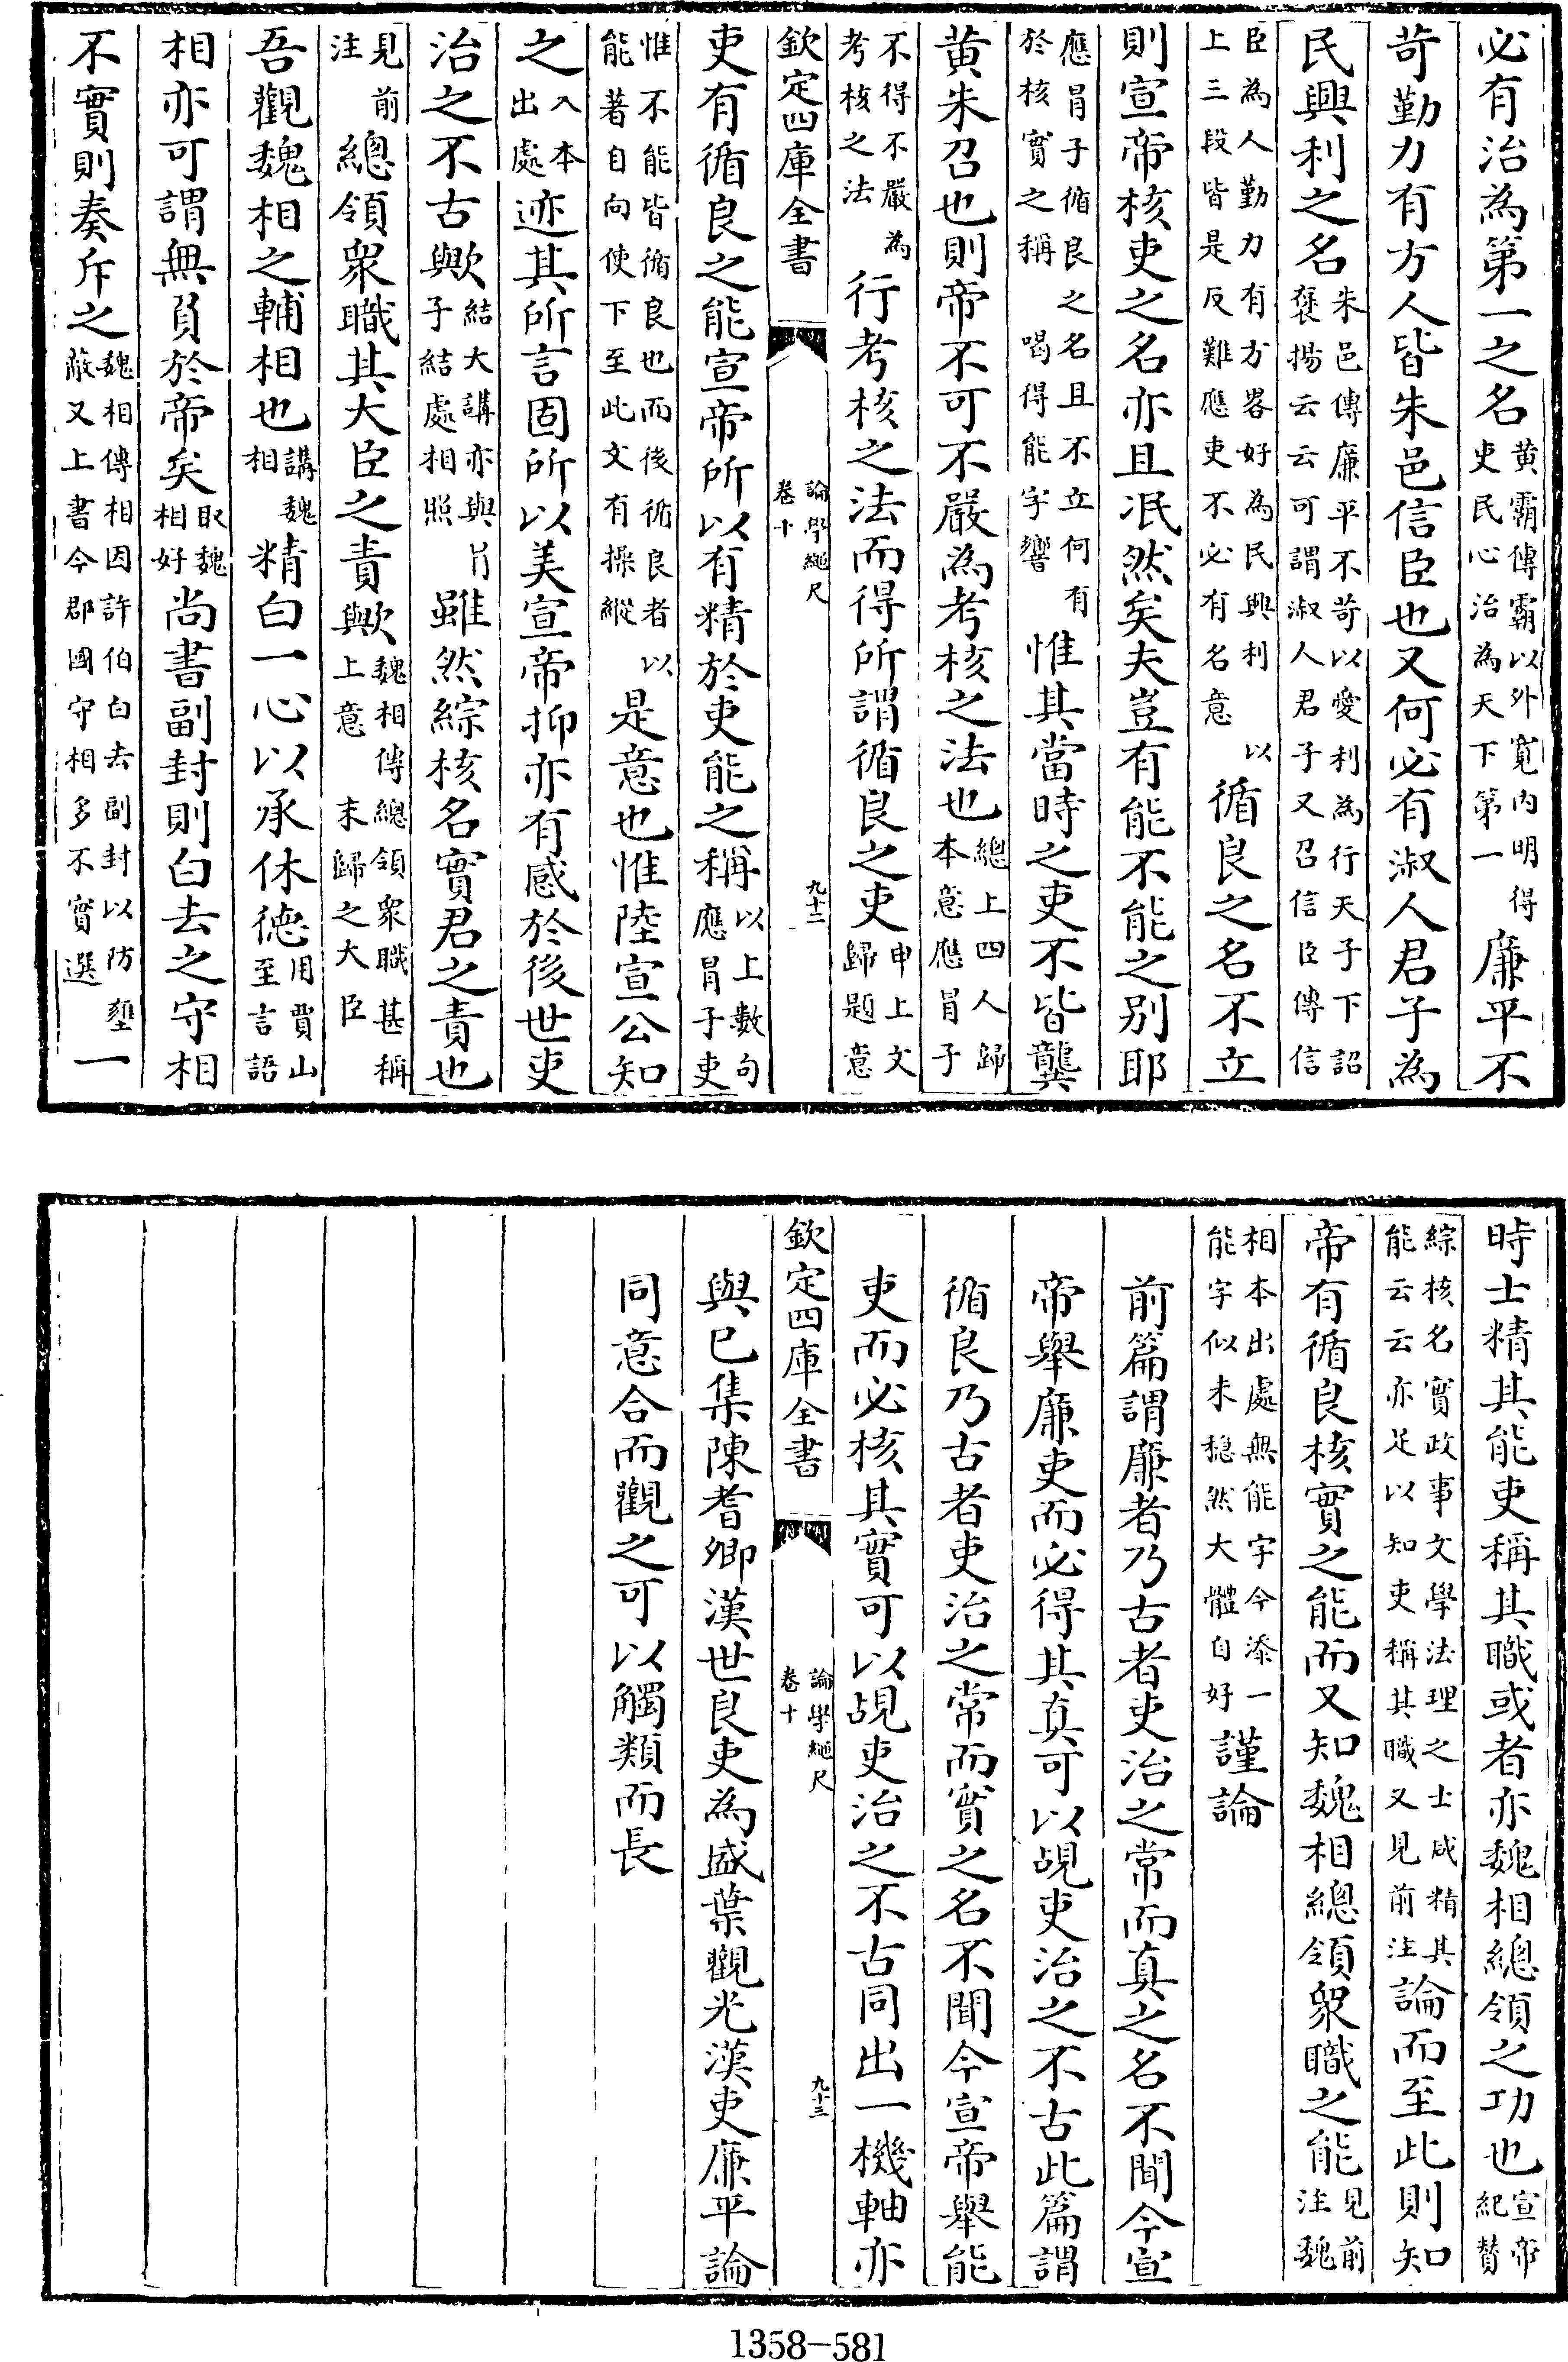 必有治為第一之名黃霸傳霸以外寛内明得吏民心治為天下第一廉平不
苛勤力有方人皆朱邑信臣也又何必有淑人君子為
民興利之名朱邑傳廉平不苛以愛利為行天子下詔襃揚云云可謂淑人君子又召信臣傳信
臣為人勤力有方畧好為民興利上三段皆是反難應吏不必有名意以循良之名不立
則宣帝核吏之名亦且泯然矣夫豈有能不能之别耶
應冐子循良之名且不立何有於核實之稱喝得能字響惟其當時之吏不皆龔
黃朱召也則帝不可不嚴為考核之法也總上四人歸本意應冐子
不得不嚴為考核之法行考核之法而得所謂循良之吏申上文歸題意
欽定四庫全書 論學繩尺卷十 九十二
吏有循良之能宣帝所以有精於吏能之稱以上數句應冐子吏
惟不能皆循良也而後循良者以能著自向使下至此文有操縱是意也惟陸宣公知
之入本出處迹其所言固所以美宣帝抑亦有感於後世吏
治之不古歟結大講亦與冐子結處相照雖然綜核名實君之責也
見前注總領衆職其大臣之責歟魏相傳總領衆職甚稱上意末歸之大臣
吾觀魏相之輔相也講魏相精白一心以承休德用賈山至言語
相亦可謂無負於帝矣取魏相好尚書副封則白去之守相
不實則奏斥之魏相傳相因許伯白去副封以防壅蔽又上書今郡國守相多不實選一
時士精其能吏稱其職或者亦魏相總領之功也宣帝紀贊
綜核名實政事文學法理之士咸精其能云云亦足以知吏稱其職又見前注論而至此則知
帝有循良核實之能而又知魏相總領衆職之能見前注魏
相本出處無能字今添一能字似未穏然大體自好謹論
前篇謂廉者乃古者吏治之常而真之名不聞今宣
帝舉廉吏而必得其真可以覘吏治之不古此篇謂
循良乃古者吏治之常而實之名不聞今宣帝舉能
吏而必核其實可以覘吏治之不古同出一機軸亦
欽定四庫全書 論學繩尺卷十 九十三
與已集陳耆卿漢世良吏為盛葉觀光漢吏廉平論
同意合而觀之可以觸類而長
1358-581